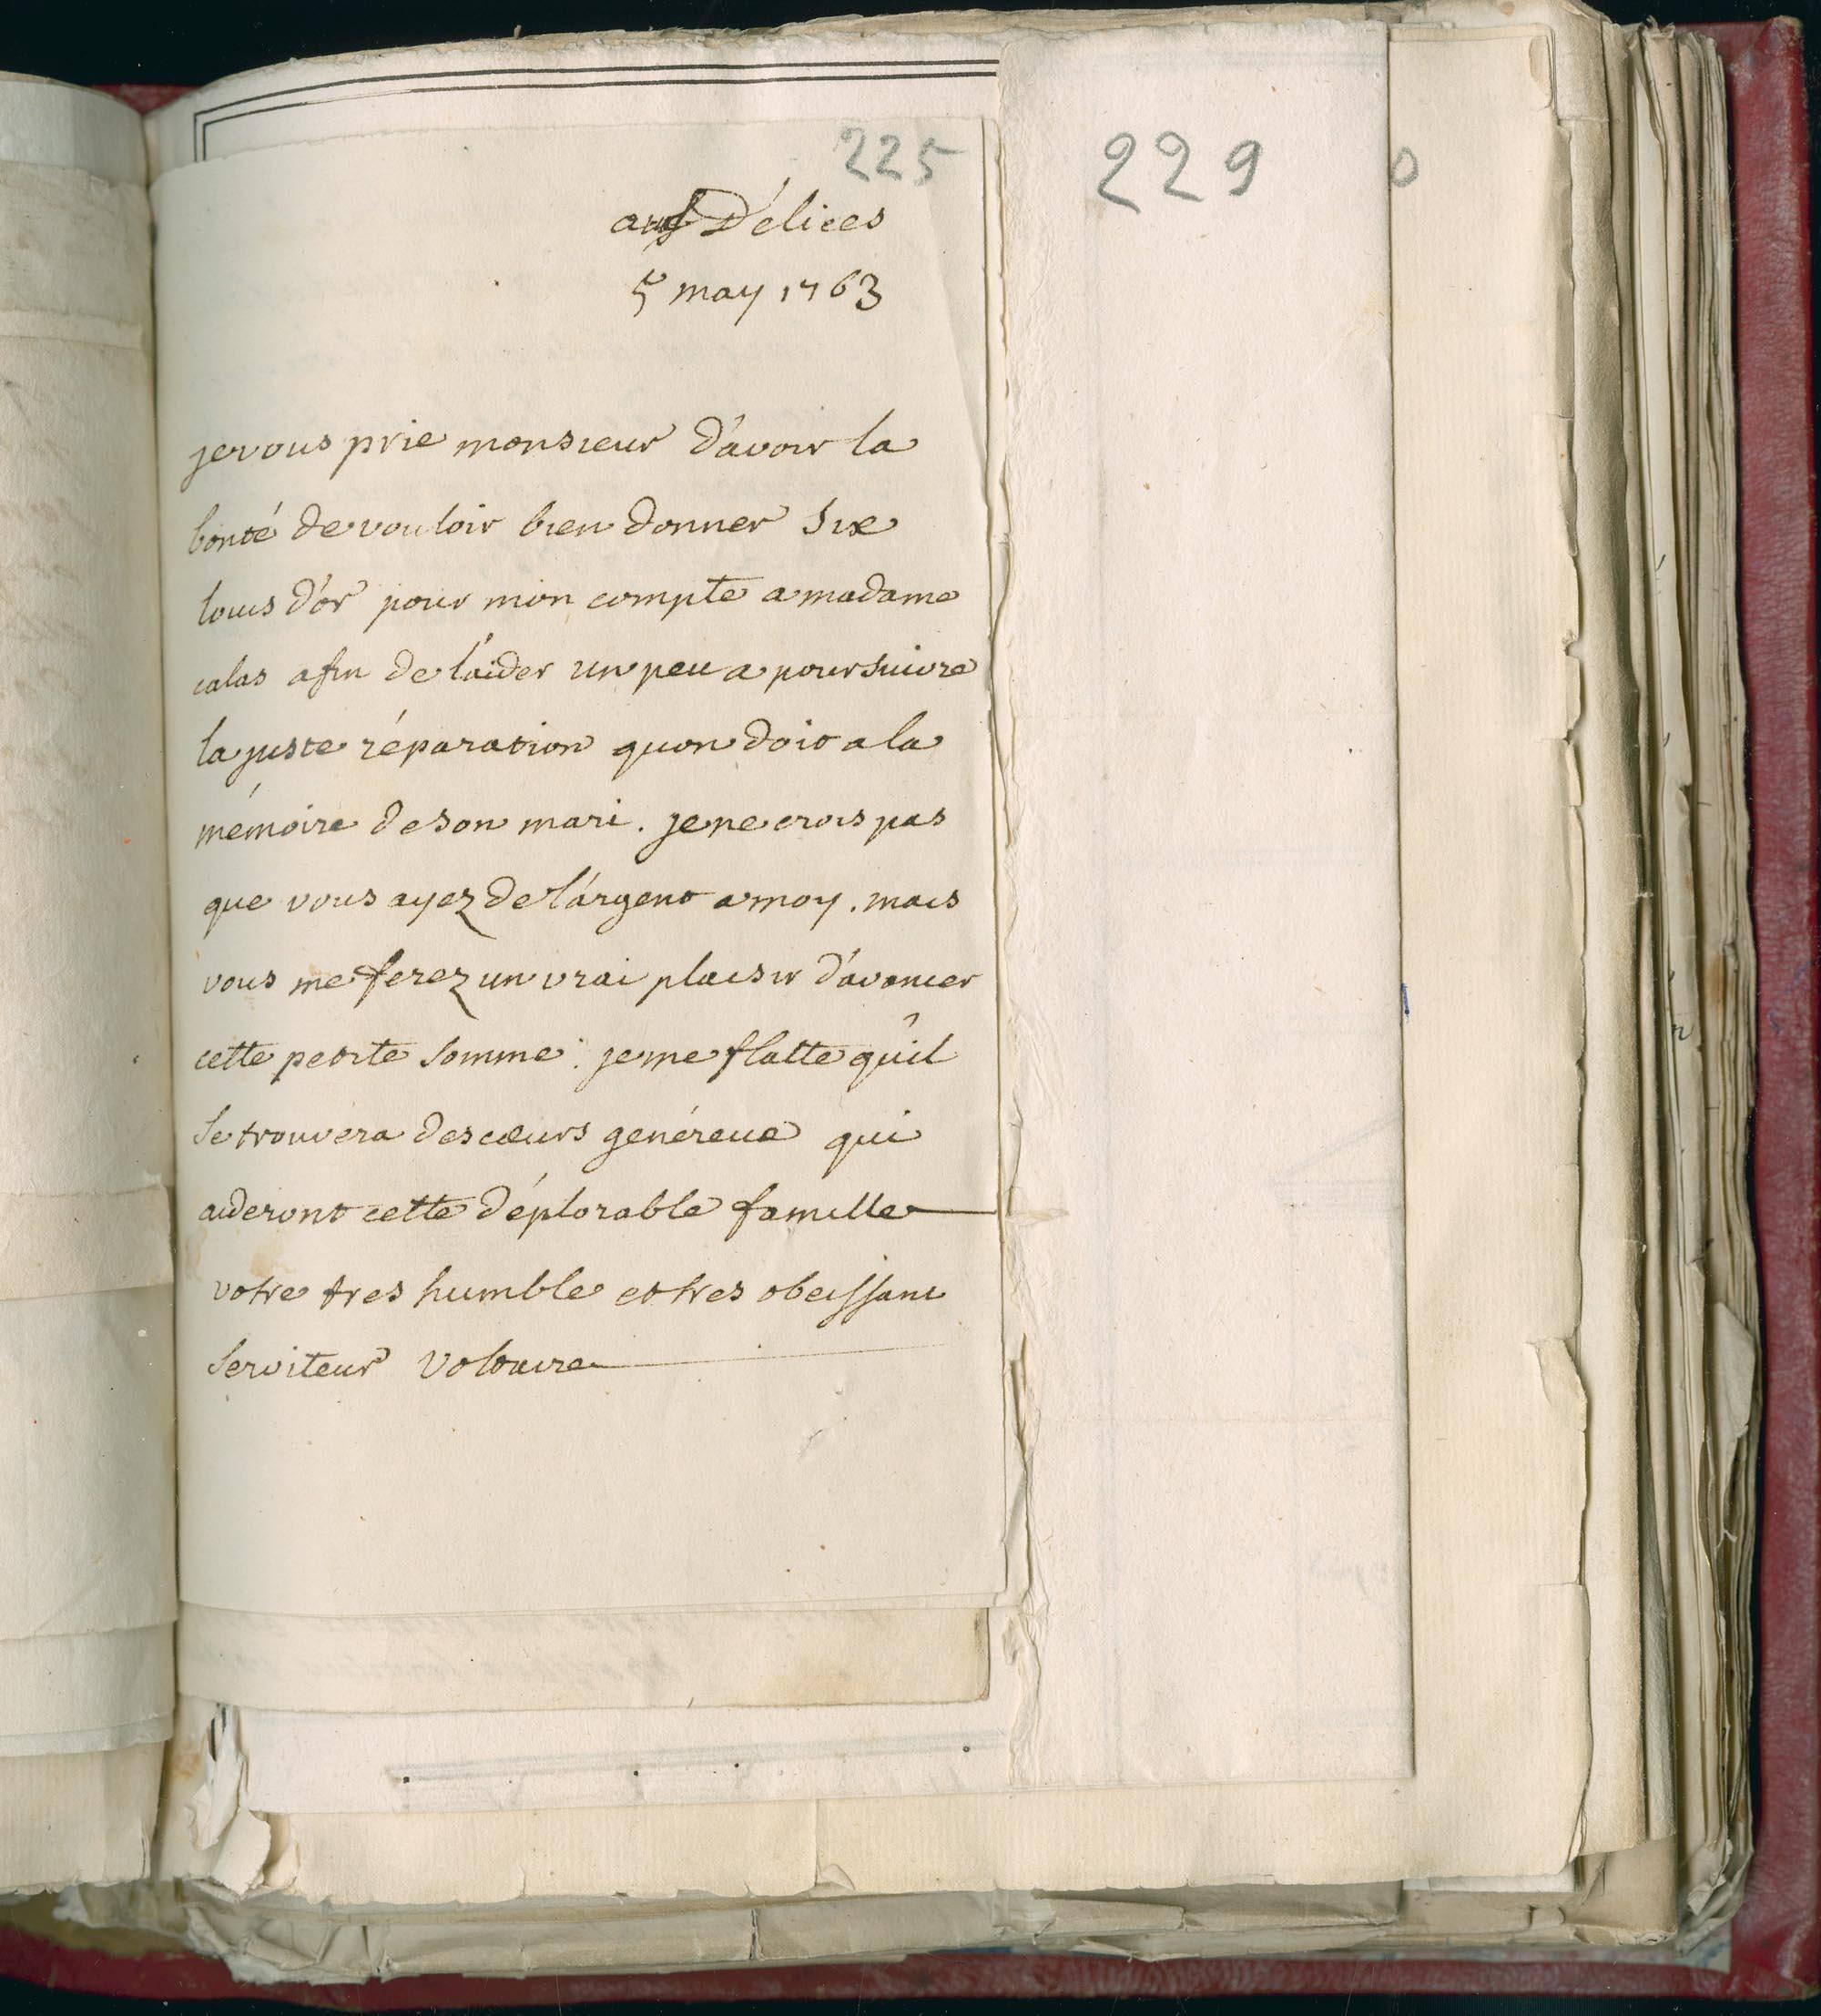 225
229
aux Délices
5 may 1763
je vous prie monsieur d'avoir la
bonté de vouloir bien donner Six
louis d'or pour mon compte a madame
calas afin de l'aider un peu a poursuivre
la juste réparation quon doit a la
mémoire de son mari. je ne crois pas
que vous ayez de l'argent a moy. mais
vous me ferez un vrai plaisir d'avancer
cette petite Somme. je me flatte qu'il
Se trouvera des cœurs genéreux qui
aideront cette déplorable famille
votre tres humble et tres obeissant
Serviteur Voltaire